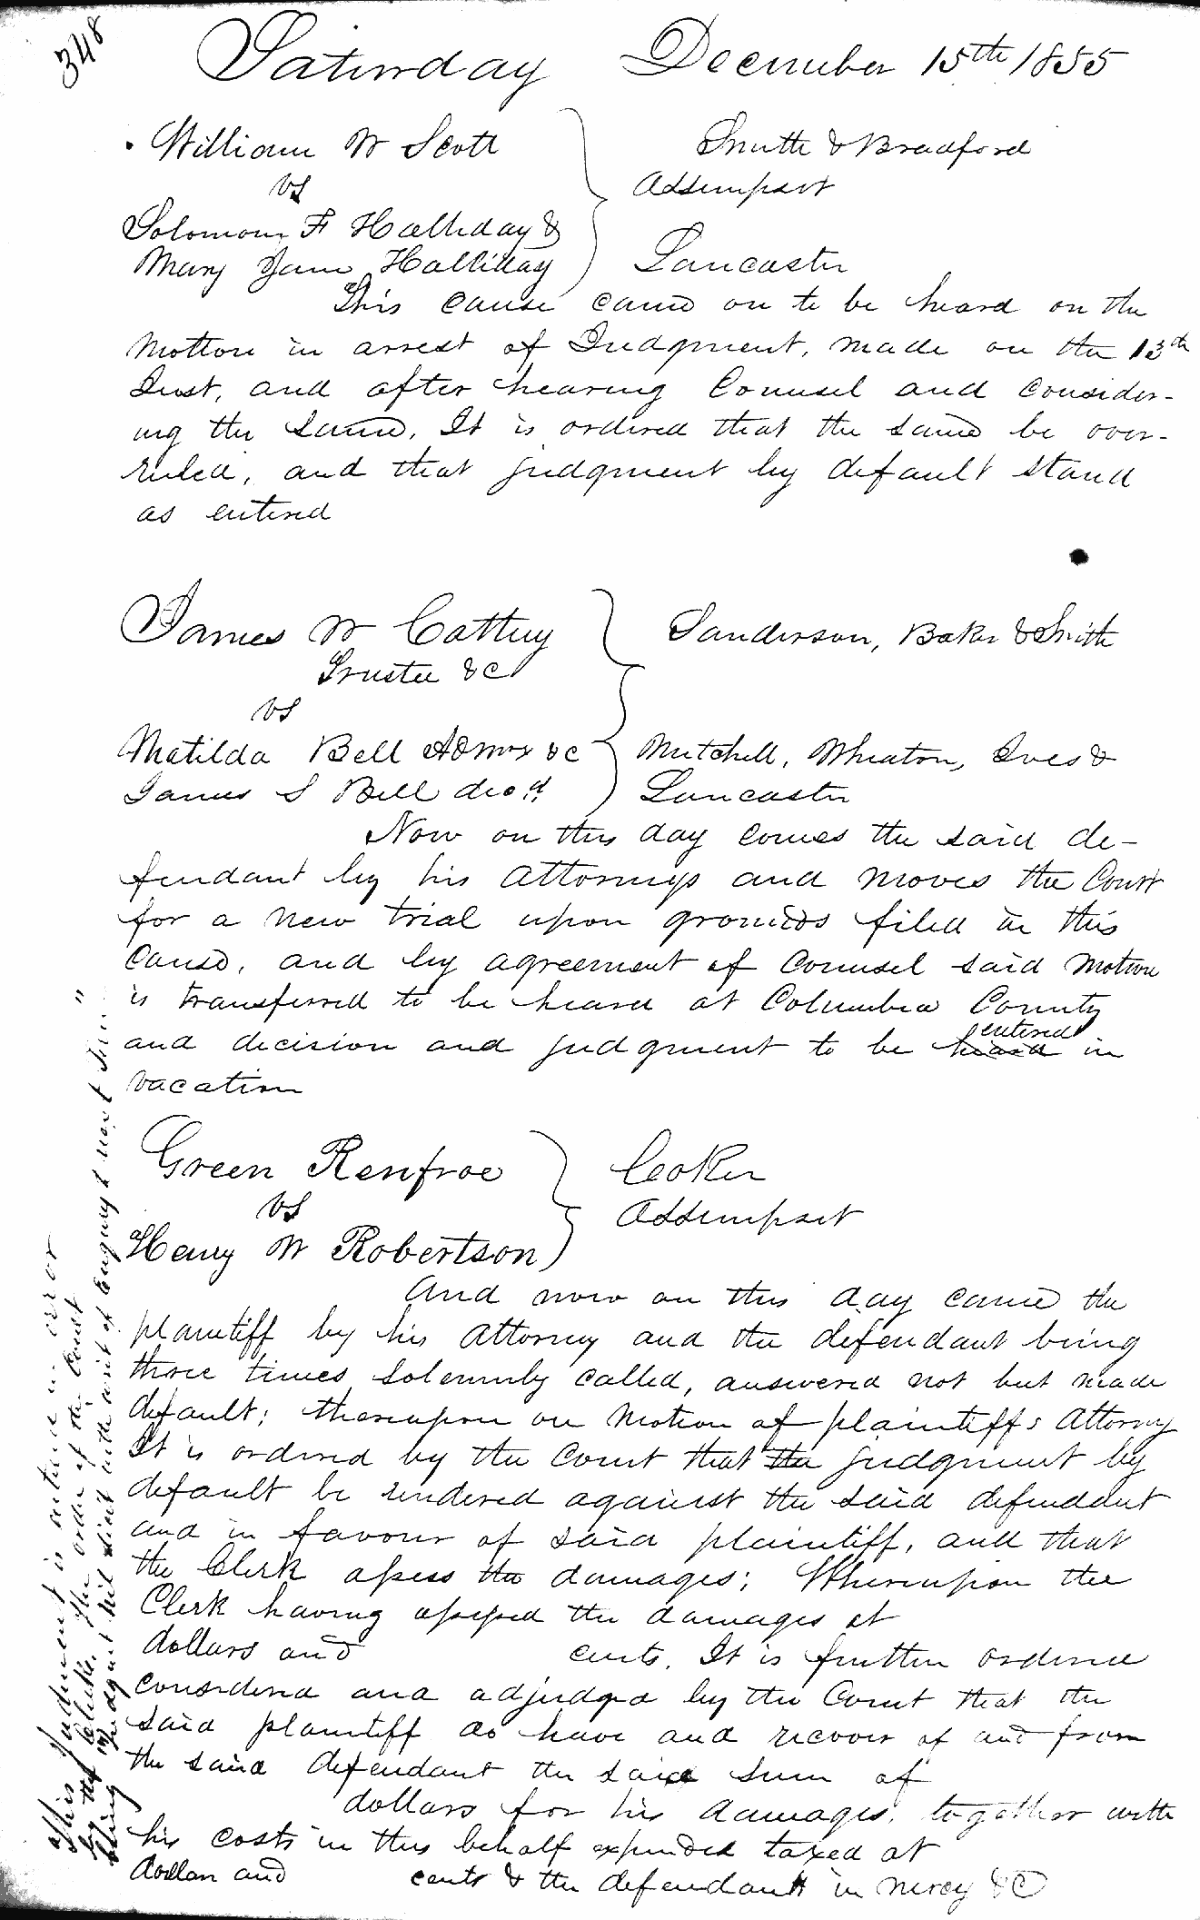 348
Saturday December 15th 1855
William W Scott Smith & Bradford
vs Assumpsit
Solomon F Halliday &
Mary Jane Halliday Lancaster
This cause came on to be heard on the
Motion in arrest of Judgment, made on the 13th
Inst, and after hearing Counsel and consider-
ing the same, It is ordered that the same be over-
ruled, and that judgment by default stand
as entered
James W Cathey Sanderson, Baker & Smith
Trustee &c
vs
Matilda Bell Admx &c Mitchell, Wheaton, Ives &
James S Bell decd. Lancaster
Now on this day comes the said de-
fendant by his Attorneys and moves the Court
for a new trial upon grounds filed in this
Cause, and by agreement of Counsel said Motion
is transferred to be heard at Columbia County
and decision and judgment to be heard entered in
vacation
Green Renfroe Coker
vs Assumpsit
Henry W Robertson
And now on this day came the
plaintiff by his Attorney and the defendant being
three times solemnly called, answered not but made
default; thereupon on Motion of plaintiffs Attorney
It is ordered by the Court that the judgment by
default be rendered against the said defendant
and in favour of said plaintiff, and that
the Clerk assess the damages; Whereupon the
Clerk having assessed the damages at
dollars and cents. It is further ordered
considered and adjudged by the Court that the
said plaintiff do have and recover of and from
the said defendant the said sum of
dollars for his damages, together with
his costs in this behalf expended taxed at
dollars and cents & the defendant in mercy &c
This Judgment is entered in error
by the Clerk, the order of the Court
being Judgment nil dicit with writ of Enquiry to next Term"